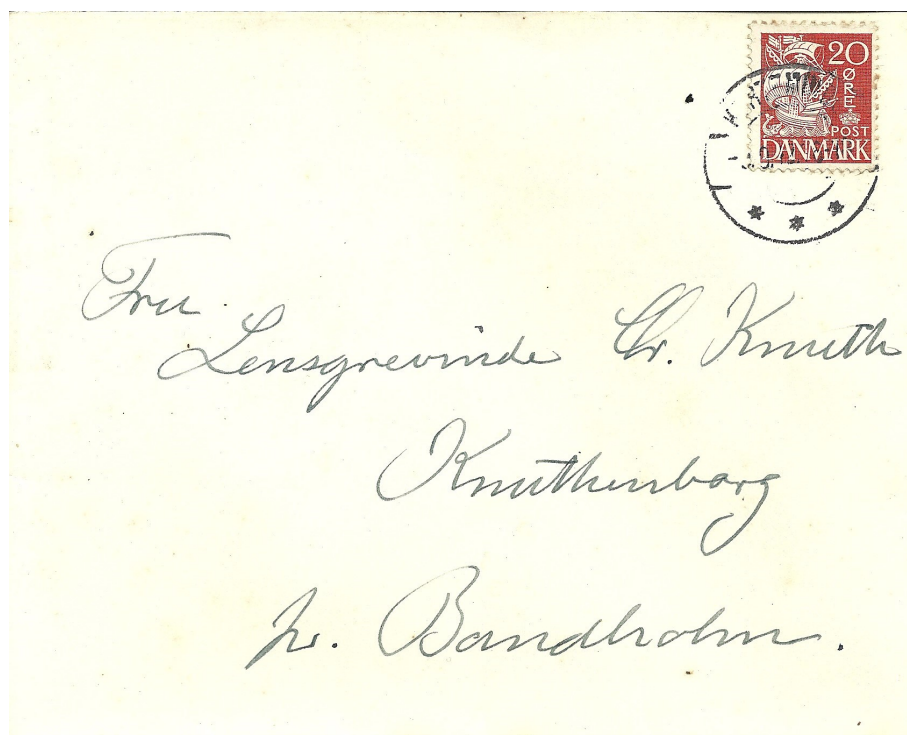 20
ØRE
POST
DANMARK
Fru
Lensgrevinde Chr. Knuth
Knuthenborg
pr. Bandholm.